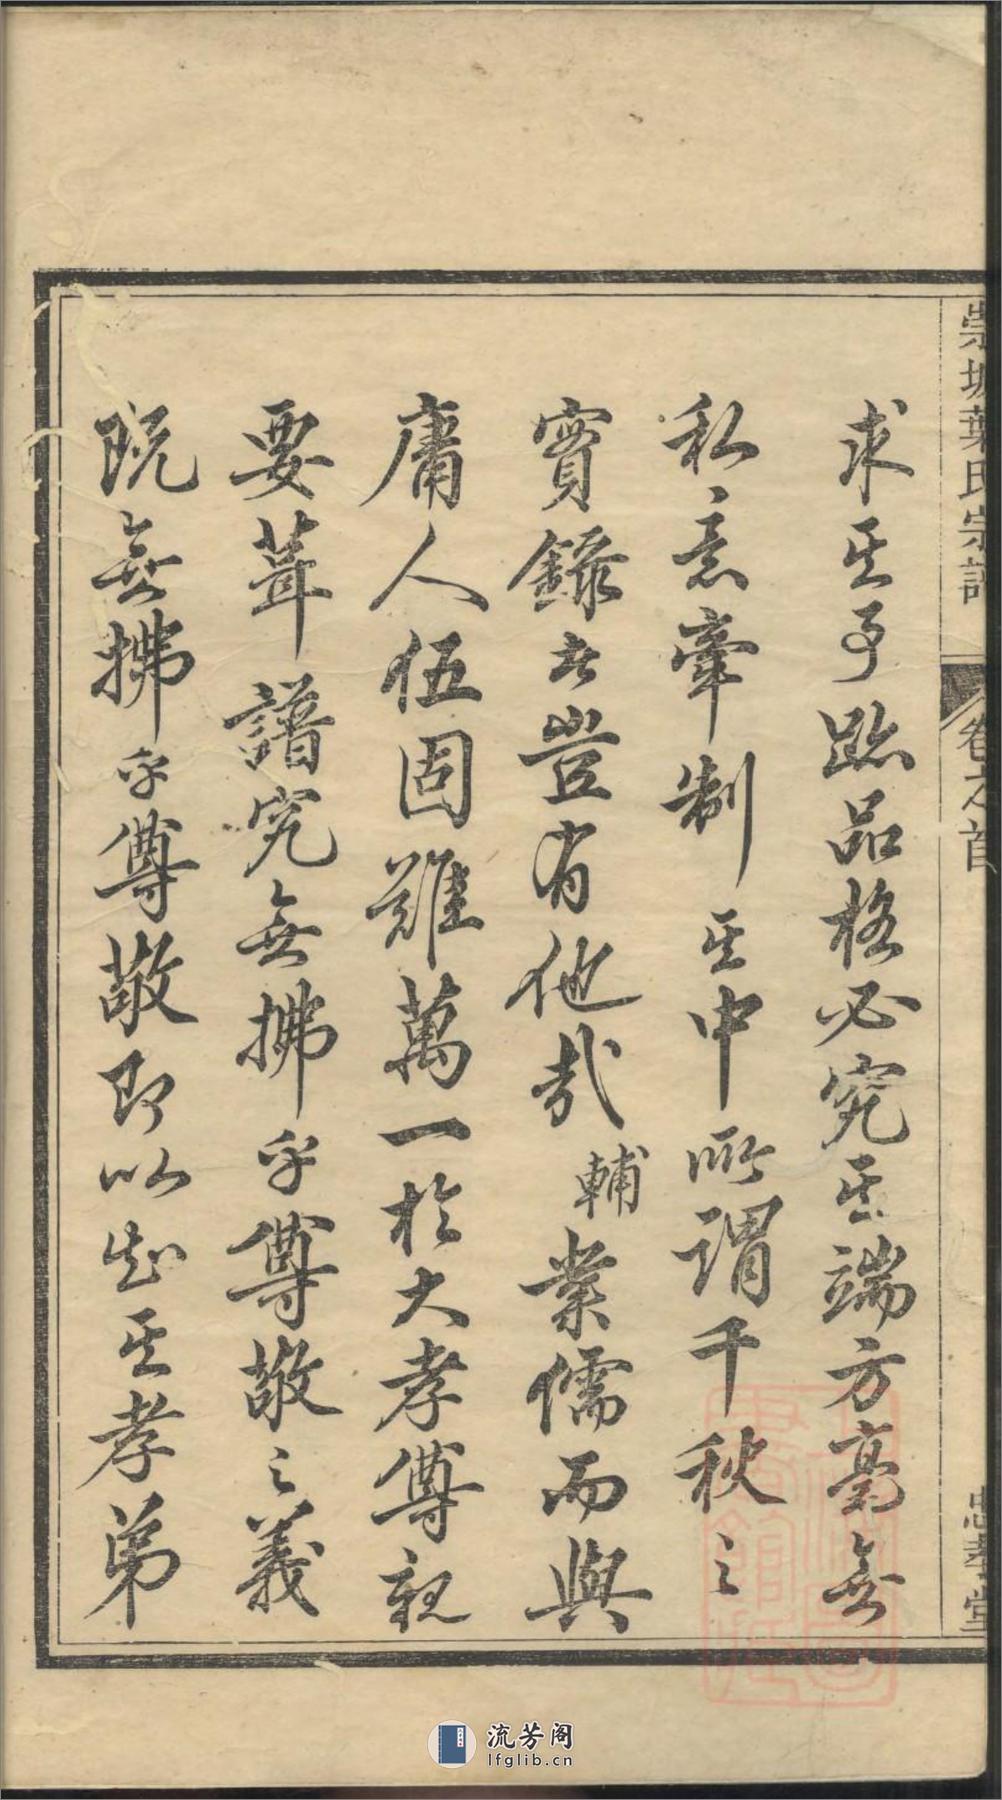 崇城葉氏宗譜
卷之首
忠孝堂
求其事跡品格必究其端方毫無
私意牽制其中所謂千秋之
實錄者豈有他哉輔業儒而與
庸人伍固難萬一於大孝尊親
要葺譜究無拂乎尊敬之義
既無拂乎尊敬即以知其孝弟
流芳阁
lfglib.cn